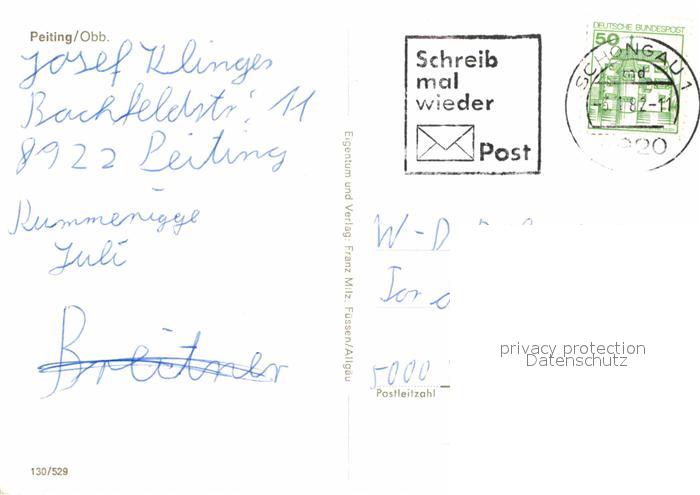 Peiting/Obb.
Josef Klinger
Bachfeldstr. 11
8922 Peiting
Rummenigge
Juli
Breitner
130/529
Eigentum und Verlag: Franz Milz, Füssen/Allgäu
Schreib
mal
wieder
Post
DEUTSCHE BUNDESPOST
50
SCHONGAU 1
md
-5.1.82-11
8920
W-D
Tor
5000
Postleitzahl
privacy protection
Datenschutz